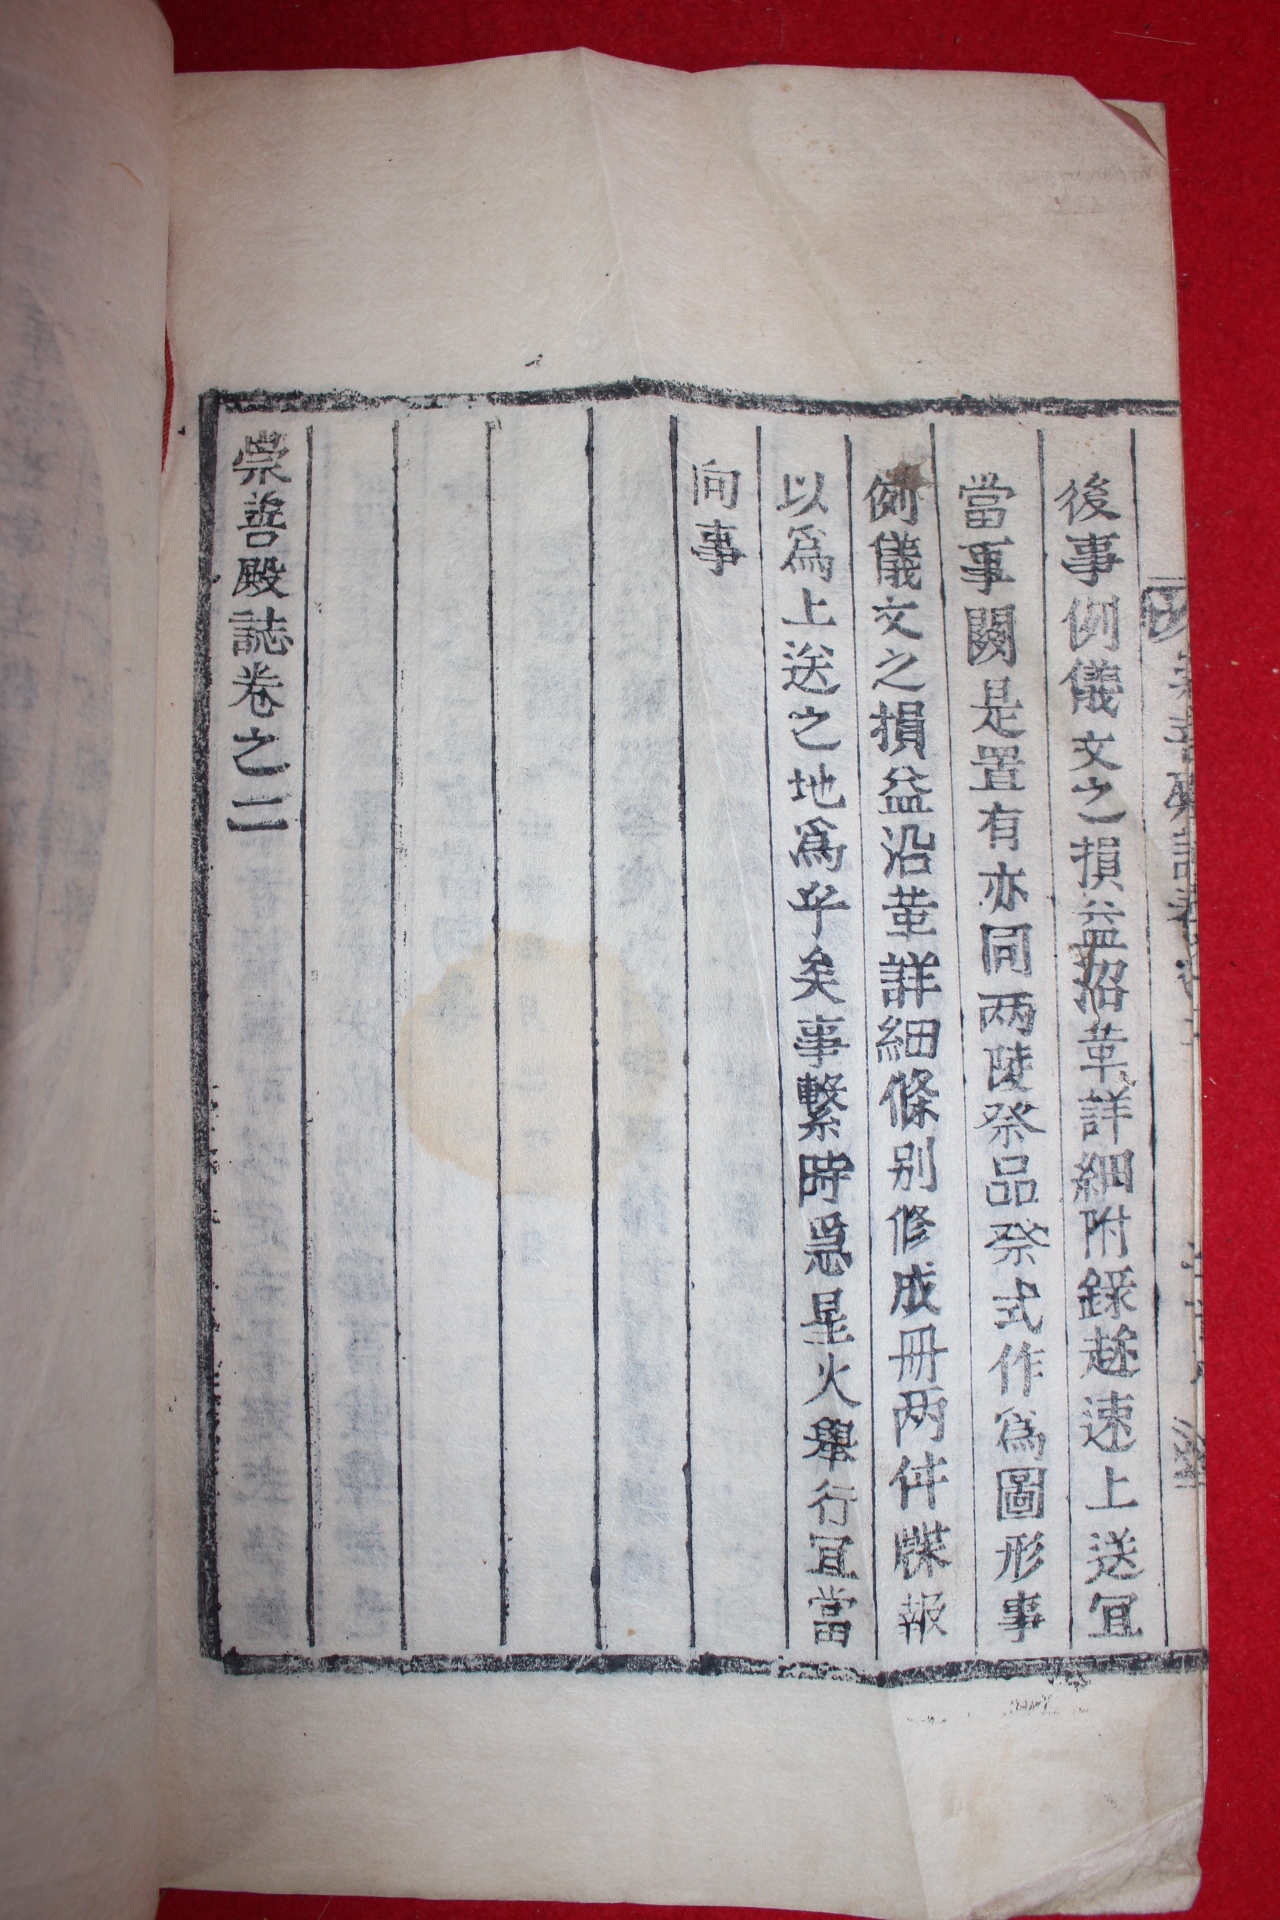 後事例儀文之損益沿革詳細附錄趂速上送宜
當事關是置有亦同两陵祭品祭式作爲圖形事
例儀文之損益沿革詳細條別修成冊两件牒報
以爲上送之地爲乎矣事繫時急星火舉行宜當
向事
崇善殿誌卷之二